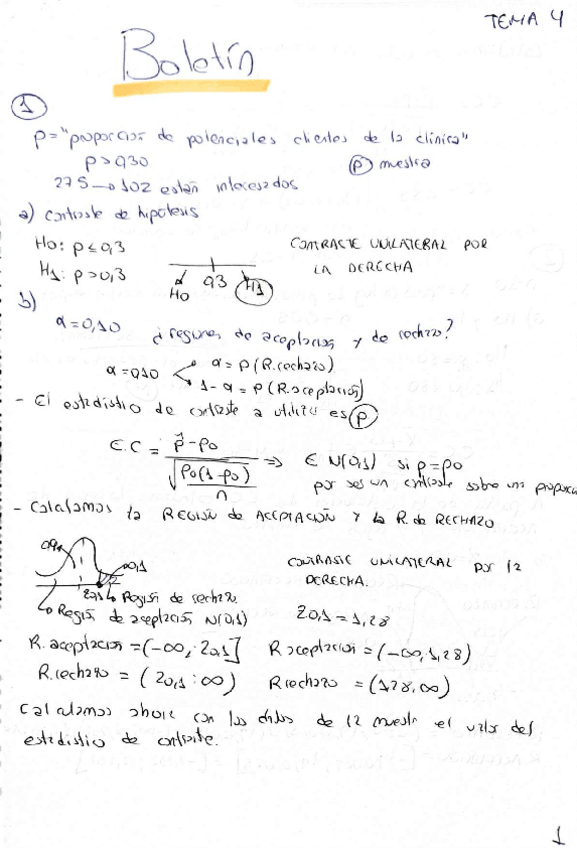 TEMA 4
Boletín
1
p="proporcion de potenciales clientes de la clínica"
p>0,30
p̂ muestra
275 → 102 están interesados
a) contraste de hipótesis
H0: p ≤ 0,3
H1: p > 0,3
H0 0,3 H1
CONTRASTE UNILATERAL POR
LA DERECHA
b)
α=0,10
¿regiones de aceptacion y de rechazo?
α=0,10
α = P (R.rechazo)
1-α = P (R.aceptacion)
- El estadistico de contraste a utilizar es p̂
E.C = p̂ - p0 / √(p0(1-p0)/n) ⇒ ∈ N(0,1) si p=p0
por ser un contraste sobre una proporcion
- Calculamos la REGIÓN de ACEPTACIÓN y la R. de RECHAZO
0,9 0,1
z0,1 ↳ Región de rechazo
↳ Región de aceptacion N(0,1)
CONTRASTE UNILATERAL por la
DERECHA.
z0,1 = 1,28
R. aceptacion = (-∞, z0,1] R aceptacion = (-∞, 1,28)
R. rechazo = (z0,1 : ∞) R rechazo = (1,28, ∞)
Calculamos ahora con los datos de la muestra el valor del
estadistico de contraste.
1